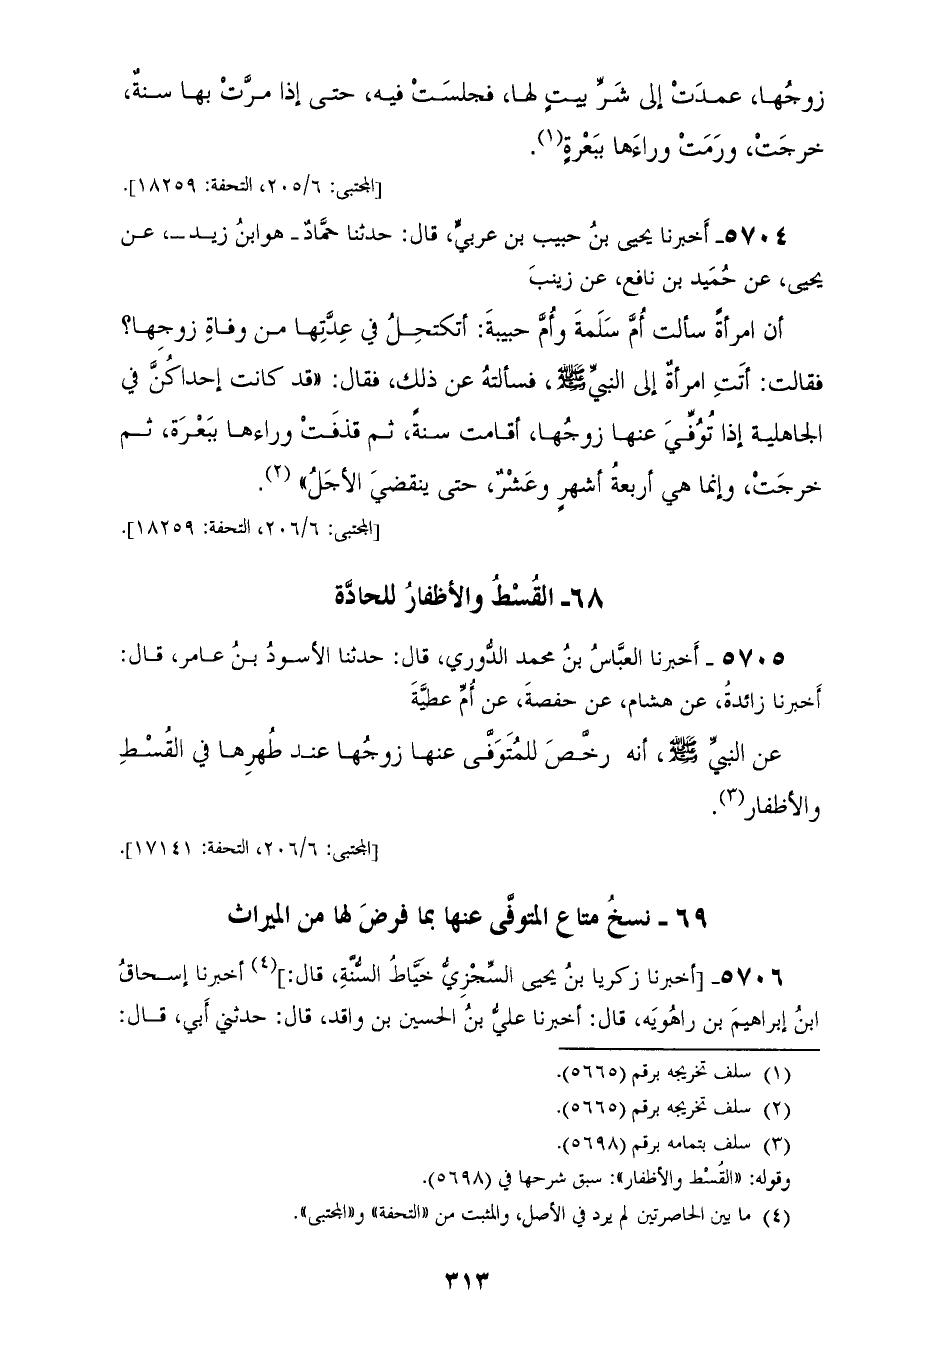 زوجُها، عمدَتْ إلى شَرِّ بيتٍ لها، فجلسَتْ فيه، حتى إذا مرَّتْ بها سنةٌ،
خرجَتْ، ورَمَتْ وراءَها ببَعْرةٍ(١).
[المجتبى: ٢٠٥/٦، التحفة: ١٨٢٥٩].
٥٧٠٤ـ أَخبرنا يحيى بنُ حبيب بن عربيٍّ، قال: حدثنا حمَّادٌ ـ هوابنُ زيد ـ، عن
يحيى، عن حُمَيد بن نافع، عن زينبَ
أن امرأةً سألت أُمَّ سَلَمةَ وأُمَّ حبيبةَ: أتكتحِلُ في عِدَّتِها من وفاةِ زوجِها؟
فقالت: أتَتِ امرأةٌ إلى النبيِّ ﷺ، فسألتهُ عن ذلك، فقال: «قد كانت إحداكُنَّ في
الجاهلية إذا تُوُفِّيَ عنها زوجُها، أقامت سنةً، ثم قذفَتْ وراءها ببَعْرَة، ثم
خرجَتْ، وإنما هي أربعةُ أشهرٍ وعَشْرٌ، حتى ينقضيَ الأجَلُ» (٢).
[المجتبى: ٢٠٦/٦، التحفة: ١٨٢٥٩].
٦٨ـ القُسْطُ والأظفارُ للحادَّة
٥٧٠٥ ـ أَخبرنا العبَّاسُ بنُ محمد الدُّوري، قال: حدثنا الأسودُ بنُ عامر، قال:
أَخبرنا زائدةُ، عن هشام، عن حفصةَ، عن أُمِّ عطيَّةَ
عن النبيِّ ﷺ، أنه رخَّصَ للمُتَوَفَّى عنها زوجُها عند طُهرِها في القُسْطِ
والأظفار(٣).
[المجتبى: ٢٠٦/٦، التحفة: ١٧١٤١].
٦٩ ـ نسخُ متاع المتوفَّى عنها بما فرضَ لها من الميراث
٥٧٠٦ـ [أخبرنا زكريا بنُ يحيى السِّجْزِيُّ خيَّاطُ السُّنَّةِ، قال:](٤) أخبرنا إسحاقُ
ابنُ إبراهيمَ بن راهُويَه، قال: أخبرنا عليُّ بنُ الحسين بن واقد، قال: حدثني أَبي، قال:
(١) سلف تخريجه برقم (٥٦٦٥).
(٢) سلف تخريجه برقم (٥٦٦٥).
(٣) سلف بتمامه برقم (٥٦٩٨).
وقوله: «القُسْط والأظفار»: سبق شرحها في (٥٦٩٨).
(٤) ما بين الحاصرتين لم يرد في الأصل، والمثبت من «التحفة» و«المجتبى».
٣١٣